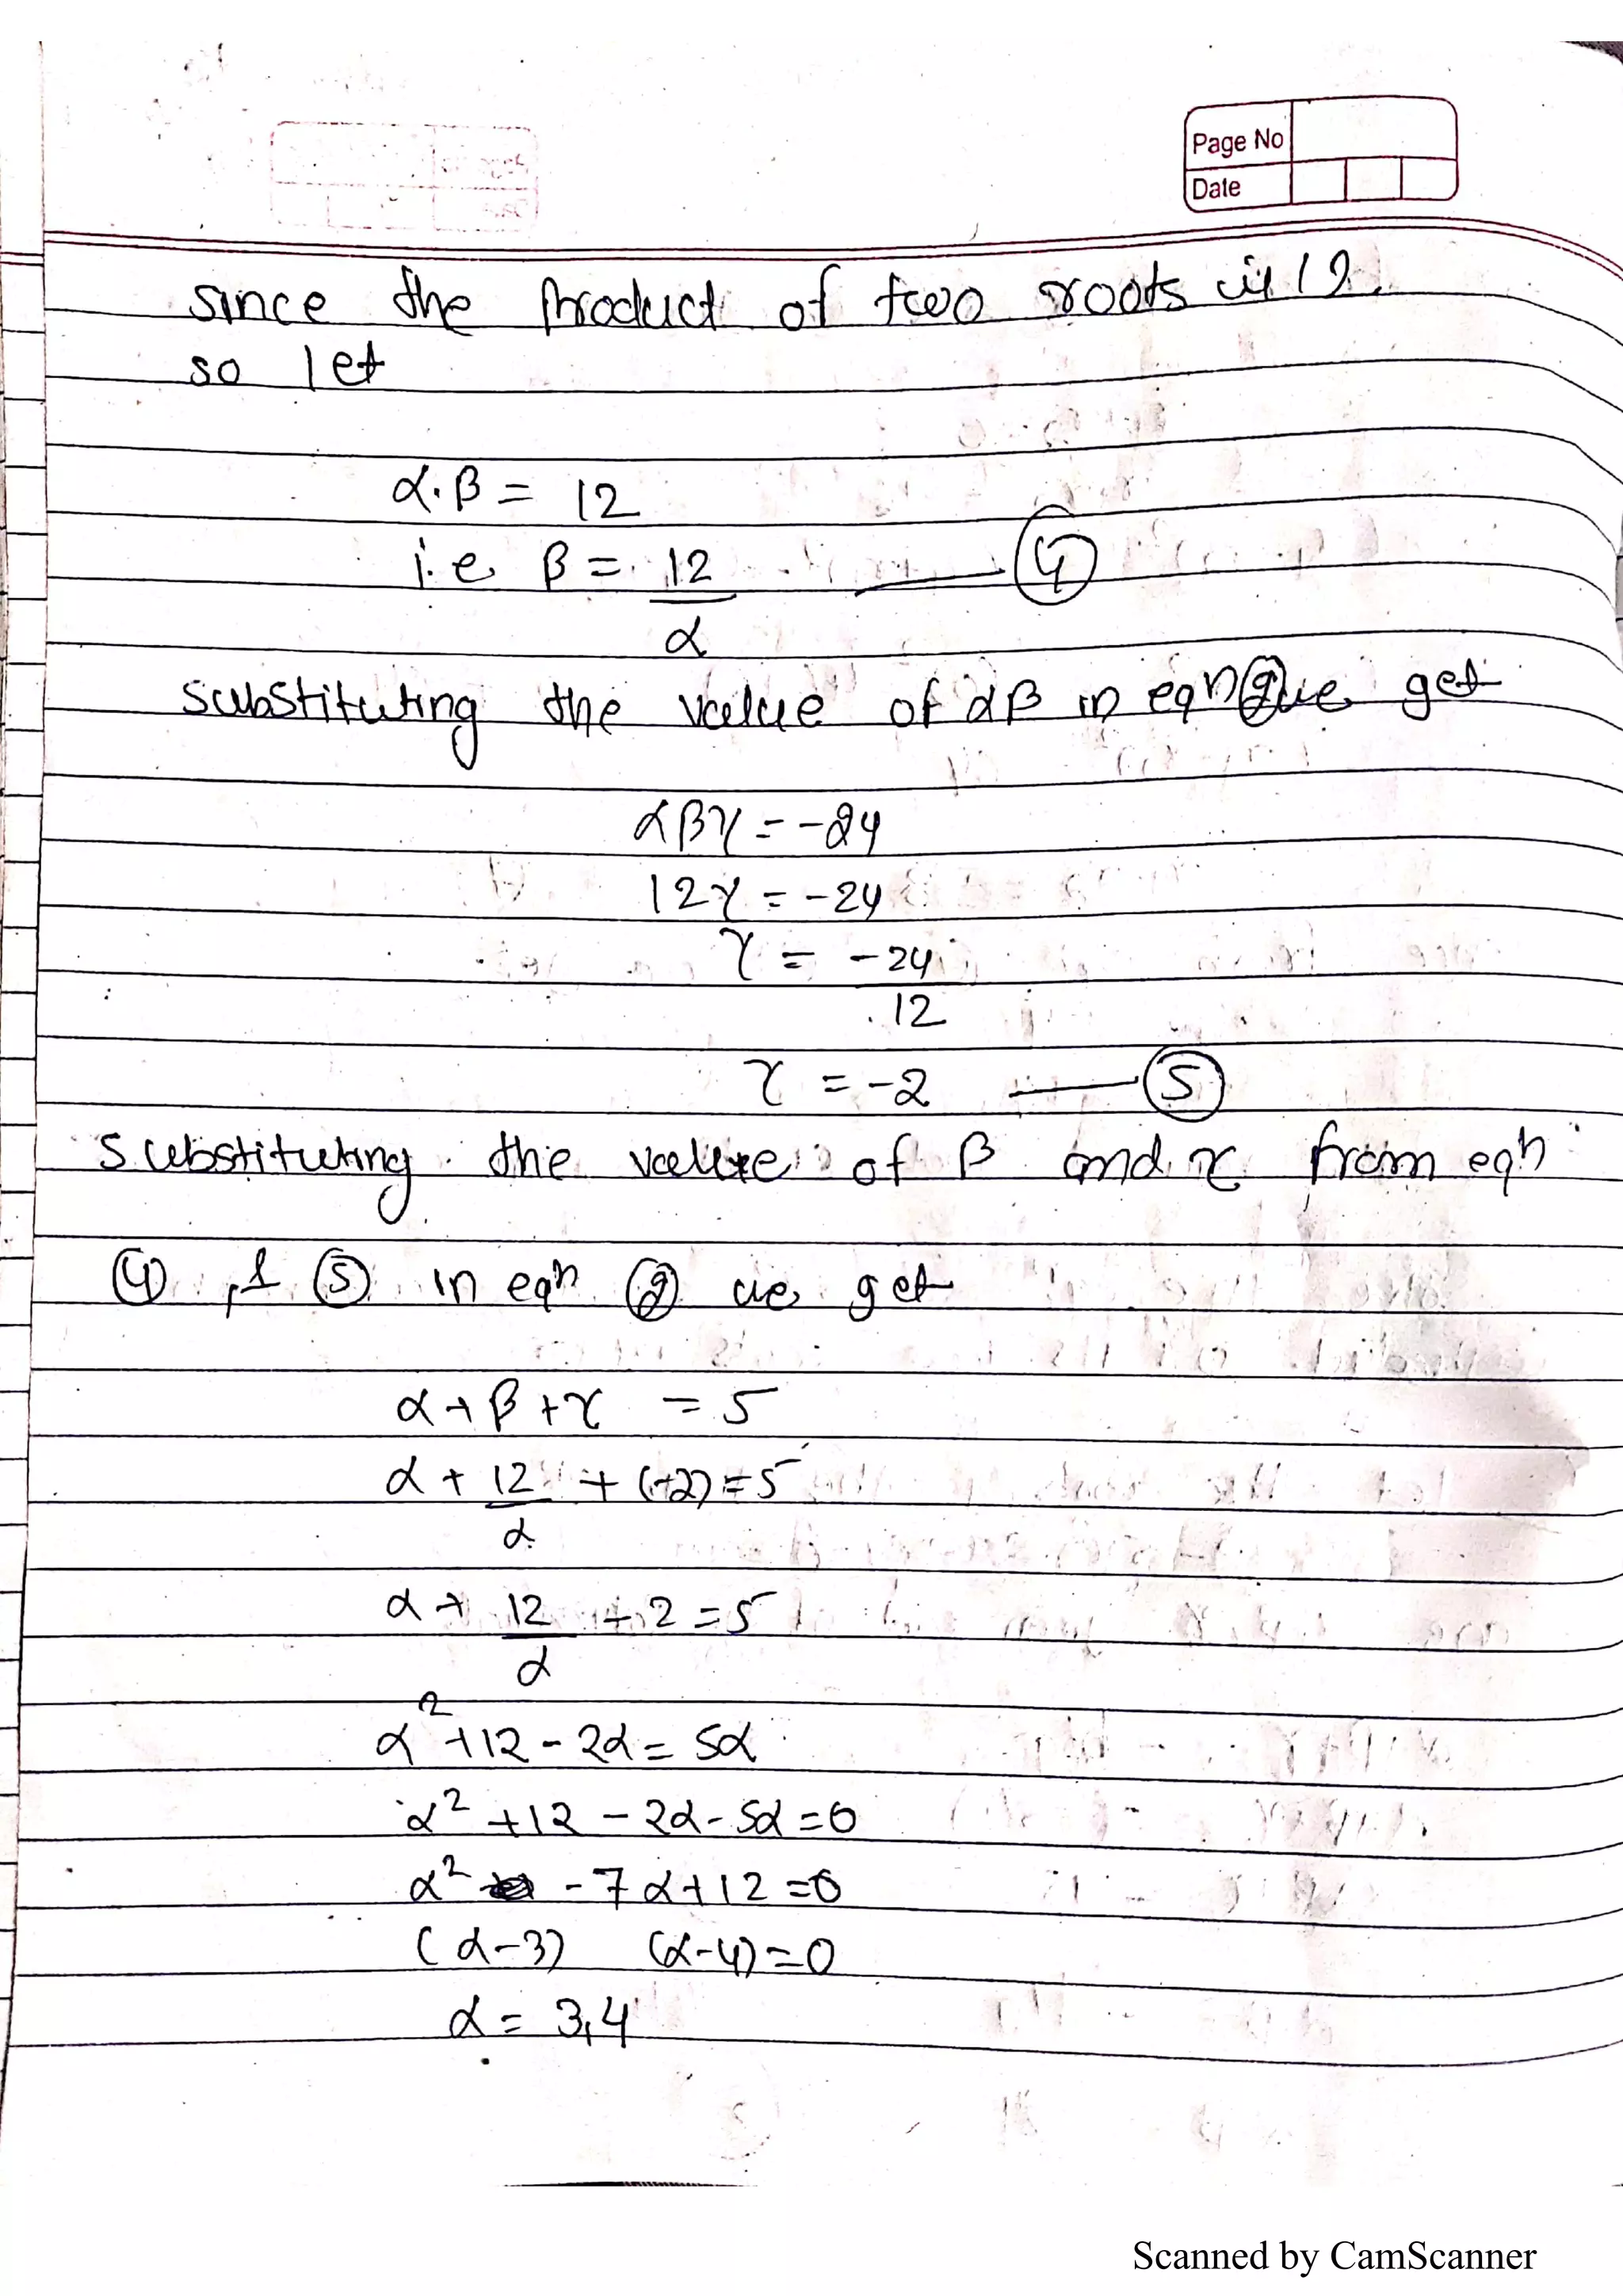 Page No
Date
since the product of two roots is 12.
so let
α.β = 12
i.e β = 12/α —— ④
substituting the value of αβ in eqn ② we get
αβγ = -24
12γ = -24
γ = -24/12
γ = -2 —— ⑤
substituting the value of β and γ from eqn
④ , & ⑤ in eqn ② we get
α + β + γ = 5
α + 12/α + (-2) = 5
α + 12/α - 2 = 5
α² + 12 - 2α = 5α
α² + 12 - 2α - 5α = 0
α² - 7α + 12 = 0
(α-3) (α-4) = 0
α = 3,4
Scanned by CamScanner